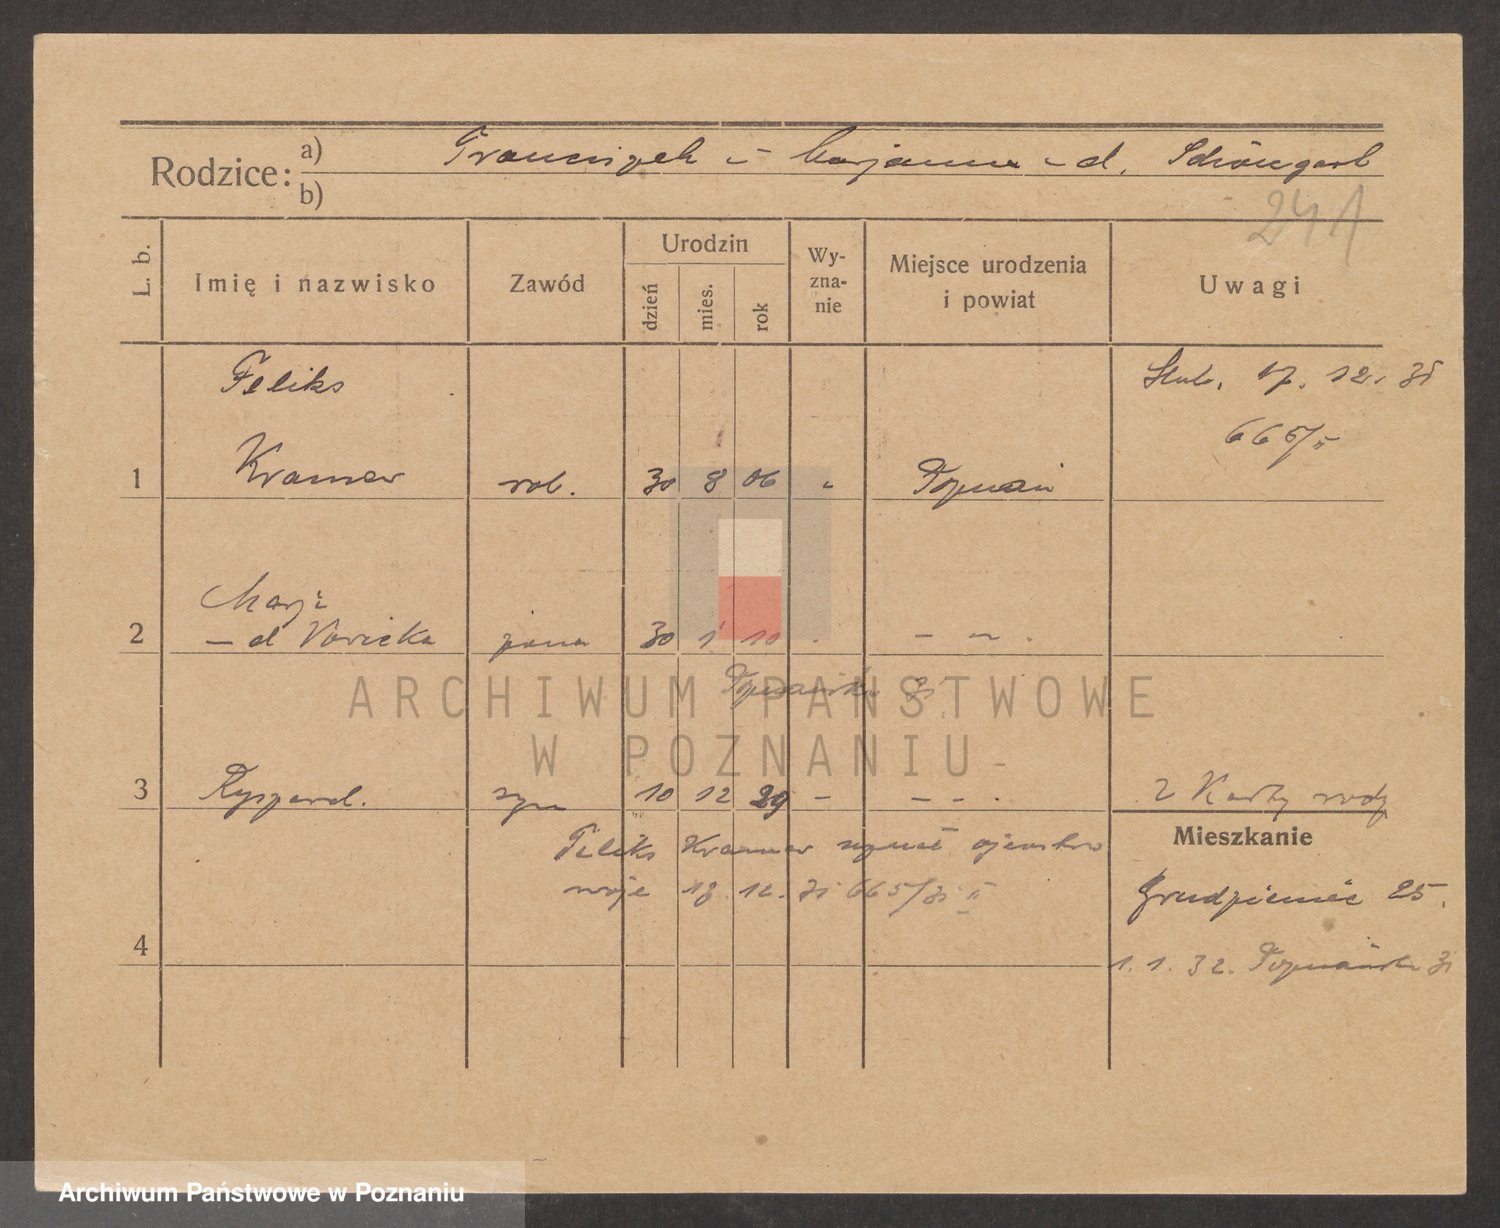 Rodzice: a) Franciszek – Marjanna – d. Schöngart
b)
241
L. b.
Imię i nazwisko
Zawód
Urodzin
dzień
mies.
rok
Wy-
zna-
nie
Miejsce urodzenia
i powiat
Uwagi
Feliks
Ślub. 17. 12. 31
665/II
1 Kramer rob. 30 8 06 Poznań
Marja
2 – d 30 1 10 – „ –
Poznańska 31
ARCHIWUM PAŃSTWOWE
W POZNANIU
3 Ryszard. syn 10 12 29 – – – 2 Karty rodz
Mieszkanie
Feliks Kramer uznał ojcostwo
swoje 17. 12. 31 665/31 II
Grudzieniec 25.
4
1. 1. 32. Poznańska 31
Archiwum Państwowe w Poznaniu